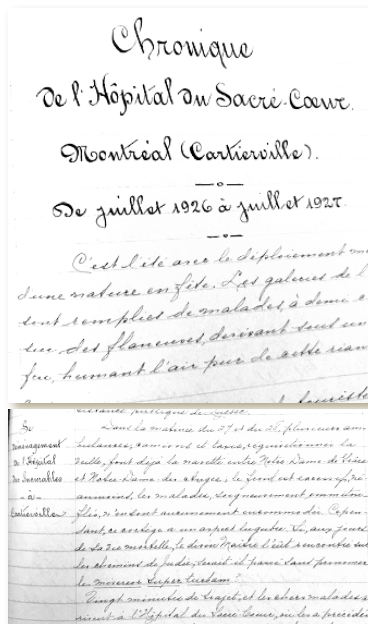 Chronique
de l'Hôpital du Sacré-Cœur.
Montréal (Cartierville).
De juillet 1926 à juillet 1927.
C'est l'été avec le déploiement
d'une nature en fête. Les galeries de l
sont remplies de malades, à demi
sur des flaneuses, devisant sous un
feu, humant l'air pur de cette
touriste
publique de Québec.
Dans la matinée du 27 et du 28, plusieurs am-
bulances, camions et taxis, réquisitionnés la
veille, font déjà la navette entre Notre-Dame de Grâce
et Notre-Dame-des-Anges; le froid est excessif, né-
anmoins, les malades, soigneusement emmitou-
flés, n'en sont aucunement incommodés. Cepen-
dant, ce cortège a un aspect lugubre. Si, aux jours
de sa vie mortelle, le divin Maître l'eût rencontré sur
les chemins de Judée, serait-il passé sans prononcer
les misereor super turbam?
Vingt minutes de trajet, et les chers malades a-
rrivent à l'Hôpital du Sacré-Cœur, où les a précédés
Dé-
ménagement
de l'Hôpital
des Incurables
-à-
Cartierville